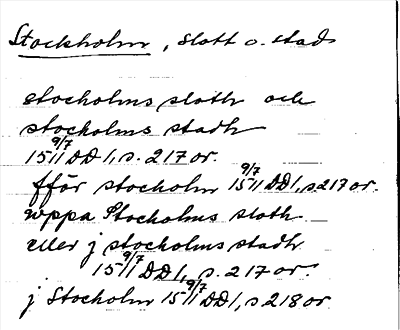 Stockholm, slott o. stad
stocholms sloth och
stocholms stadh
15 9/7 11 DD 1, s. 217 or.
fför stocholm 15 9/7 11 DD 1, s. 217 or.
wppa Stocholms sloth
eller j stocholms stadh
15 9/7 11 DD 1, s. 217 or.
j Stocholm 15 9/7 11 DD 1, s 218 or